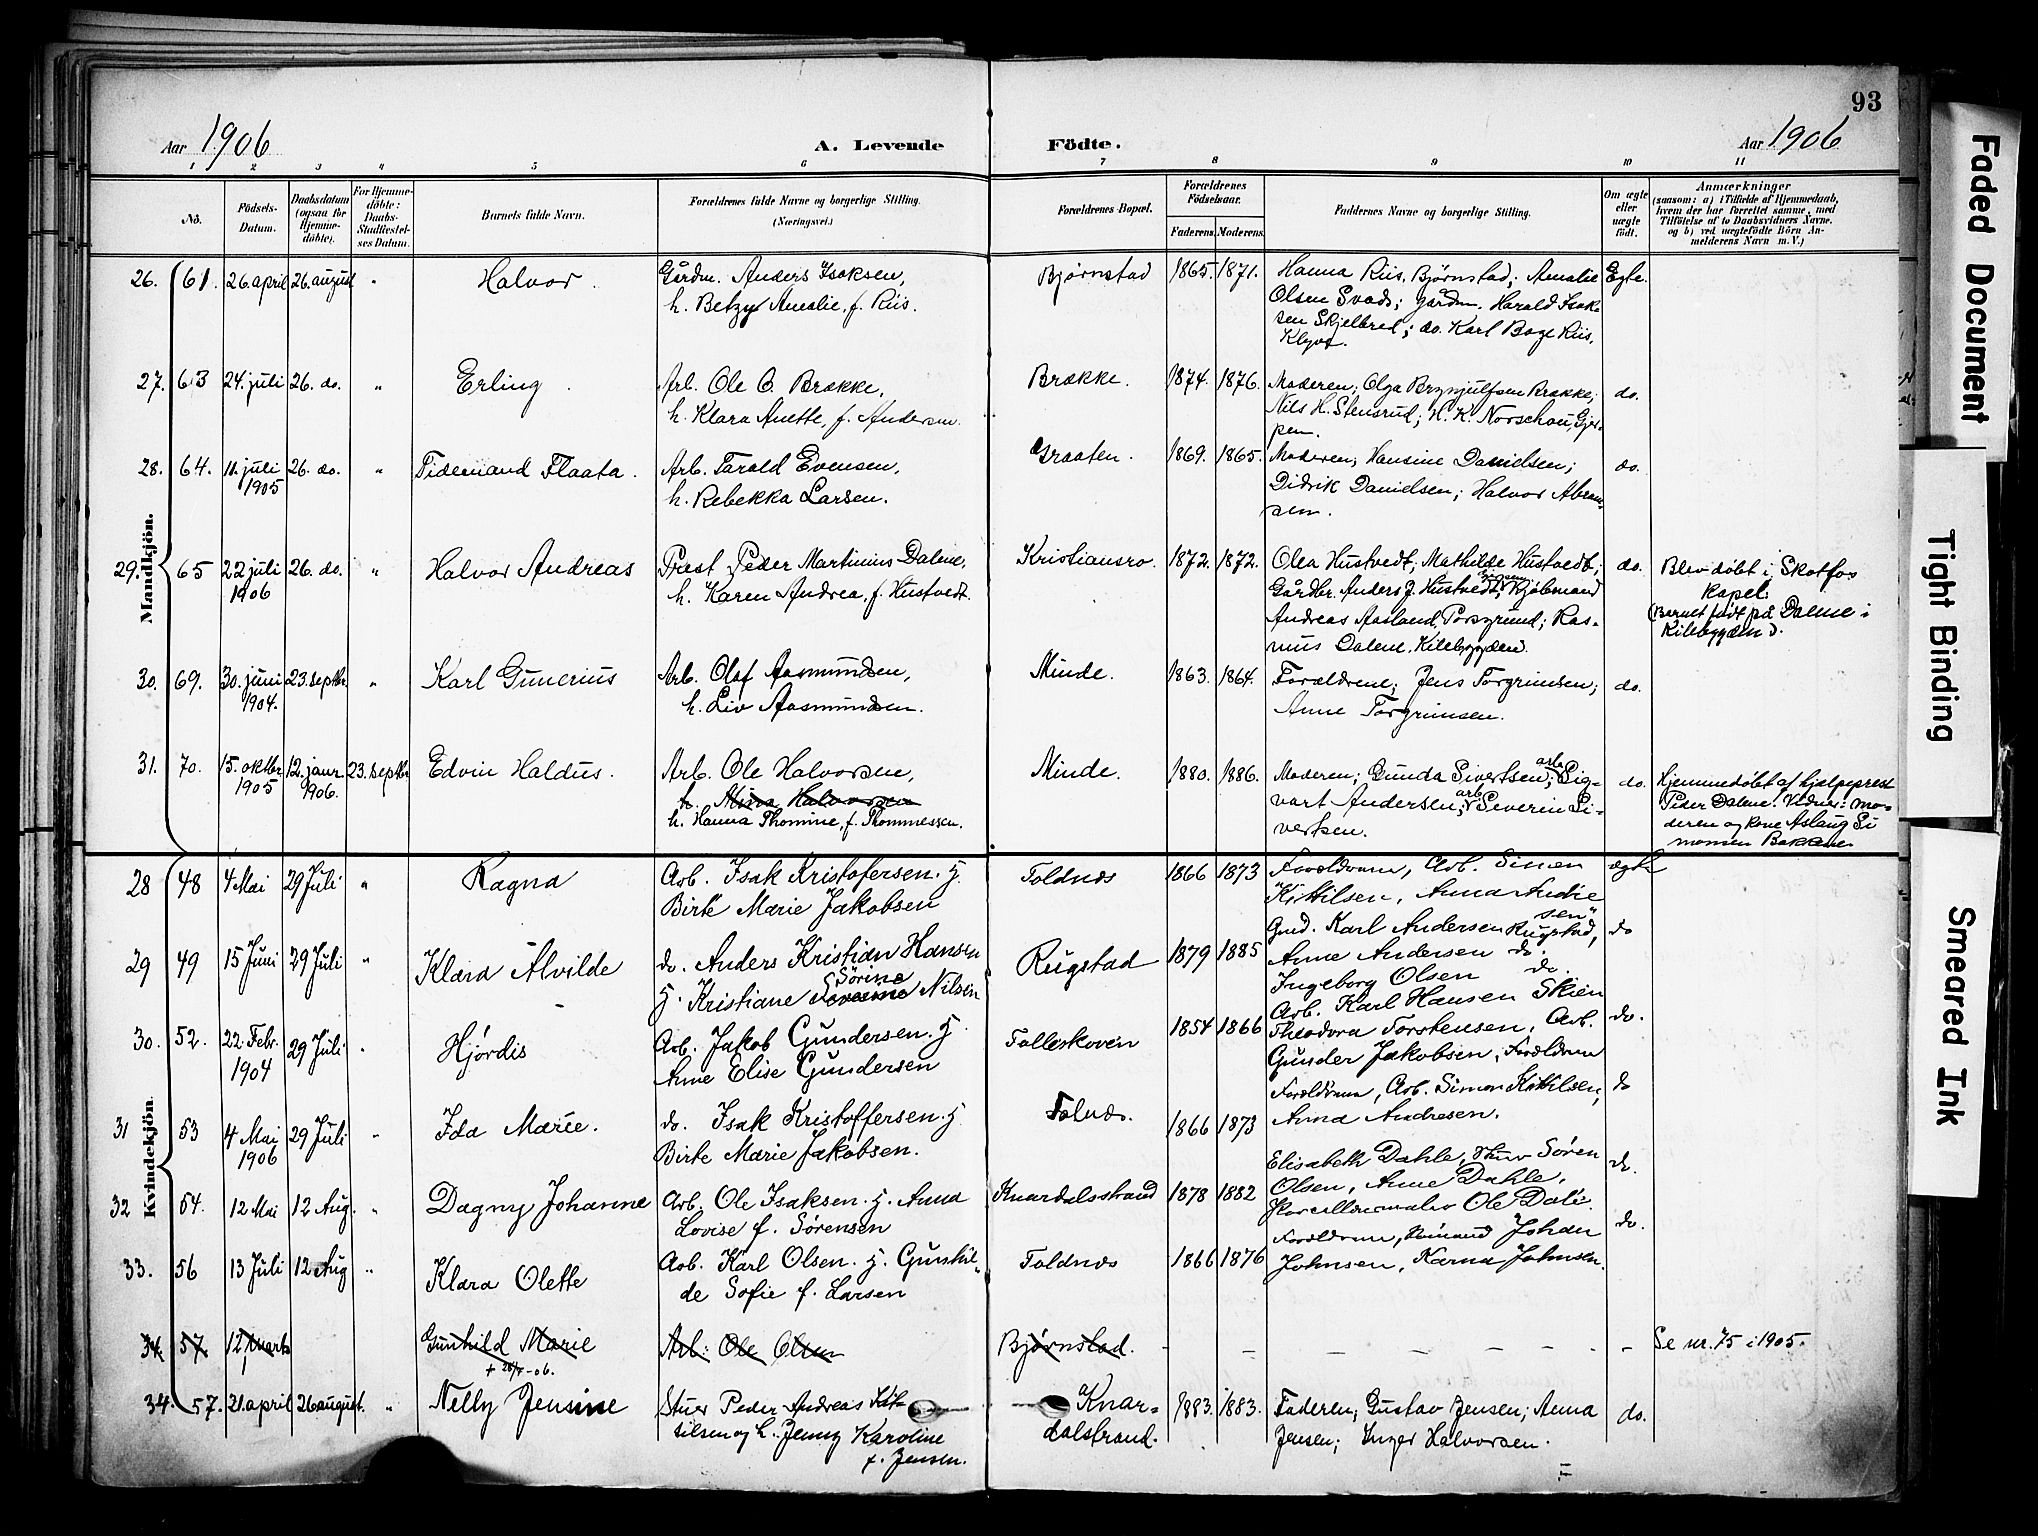 93
Aar 1906
A. Levende
Födte.
Aar 1906
1 2 3 4 5 6 7 8 9 10 11
No.
Födsels-
Datum.
Daabsdatum
(ogsaa for
Hjemme-
döbte).
For Hjemme-
döbte:
Daabs-
Stadfæstel-
ses Datum.
Barnets fulde Navn.
Forældrenes fulde Navne og borgerlige Stilling.
(Næringsvei.)
Forældrenes Bopæl.
Forældrenes
Födselsaar.
Faderens. Moderens.
Faddernes Navne og borgerlige Stilling.
Om ægte
eller
uægte
födt.
Anmærkninger
(saasom: a) i Tilfælde af Hjemmedaab,
hvem der har forrettet samme, med
Tilföielse af to Daabsvidners Navne.
og b) ved uægtefödte Börn An-
melderens Navn m. V.)
Mandkjön.
26. 61. 26. april 26. august " Halvor.
Gårdm. Anders Isaksen,
h. Betzy Amalie, f. Riis.
Bjørnstad 1865. 1871.
Hanna Riis, Bjørnstad; Amalie
Olsen Svads; gårdm. Harald Isak-
sen Skjelbred; do. Karl Boye Riis,
Klyve.
Egte.
27. 63 24. juli 26. do. " Erling.
Arb. Ole O. Brække,
h. Klara Anette, f. Andersen.
Brække. 1874. 1876.
Moderen; Olga Brynjulfsen Brække;
Nils H. Stensrud; H. K. Norschau, Gjer-
pen.
do.
28. 64. 11. juli 26. do. " Tidemand Flaata.
1905
Arb. Tarald Evensen,
h. Rebekka Larsen.
Graaten. 1869. 1865.
Moderen; Hansine Danielsen;
Didrik Danielsen; Halvor Abram-
sen.
do.
29. 65 22 juli 26. do. " Halvor Andreas
1906
Prest Peder Martinius Dalene,
h. Karen Andrea, f. Hustvedt.
Kristiansro. 1872. 1872.
Olea Hustvedt, Mathilde Hustvedt;
Gårdbr. Anders J. Hustvedt, Kjøbmand
Andreas Aasland, Porsgrund; Ras-
mus Dalene, Kilebygden.
do.
Blev døbt i Skotfos
kapel.
(Barnet født på Dalene i
Kilebygden).
30. 69. 30. juni 23. septbr. " Karl Gunerius
1904.
Arb. Olaf Aasmundsen,
h. Liv Aasmundsen.
Minde. 1863. 1864.
Forældrene; Jens Torgrimsen;
Anne Torgrimsen.
do.
31. 70. 15. oktbr. 12. janr. 23. septbr. Edvin Haldus.
1905 1906.
Arb. Ole Halvorsen,
h. Mina Halvorsen
h. Hanna Thomine, f. Thommessen.
Minde. 1880. 1886.
Moderen; Gunda Sivertsen; arb. Sig-
vart Andersen; arb. Severin Si-
vertsen.
do.
Hjemmedøbt af hjælpeprest
Peder Dalene. Vidner: mo-
deren og kone Aslaug Si
monsen Bakkene
Kvindekjön
28 48 4 Mai 29 Juli " Ragna
Arb. Isak Kristofersen. H.
Birte Marie Jakobsen
Toldnæs 1866 1873
Forældrene, Arb. Simen
Kittilsen, Anna Andre
sen"
ægte
29 49 15 Juni 29 Juli " Klara Alvilde
do. Anders Kristian Hansen
H. Kristiane Severine Sörine Nilsen
Rugstad 1879 1885
Gmd. Karl Andersen Rugstad,
Anne Andersen do.
Ingeborg Olsen do.
Arb. Karl Hansen Skien
do
30. 52. 22. Febr. 29 Juli " Hjördis
1904
Arb. Jakob Gundersen. H.
Anne Elise Gundersen
Tolleskoven 1854 1866
Theodora Torstensen, Arb.
Gunder Jakobsen, Forældrene
do.
31 53 4 Mai 29 Juli " Ida Marie.
1906
do. Isak Kristoffersen. H.
Birte Marie Jakobsen.
Tolnæs. 1866 1873
Forældrene, Arb. Simon Kittilsen,
Anna Andresen.
do
32 54. 12 Mai 12 Aug. " Dagny Johanne
Arb. Ole Isaksen. H. Anna
Lovise f. Sörensen
Knardalsstrand 1878 1882
Elisabeth Dahle, Stuer Sören
Olsen, Anne Dahle,
Porcellænsmaler Ole Dale.
do.
33. 56 13 Juli 12 Aug " Klara Olette
Arb. Karl Olsen. H. Gunhil-
de Sofie f. Larsen
Toldnæs 1866 1876
Forældrene, Sömand Johan
Johnsen, Karna Johnsen.
do.
34. 57. 12 marts Gunhild Marie
+ 28/4-06.
Arb. Ole Olsen
Bjørnstad.
Se nr. 75 i 1905.
34. 57. 21. april 26 august. " Nelly Jensine
Stuer Peder Andreas Kit-
tilsen og h. Jenny Karoline
f. Jensen.
Knar-
dalstrand. 1883. 1883.
Faderen; Gustav Jensen; Anna
Jensen; Inger Halvorsen.
do.
Faded Document
Tight Binding
Smeared Ink